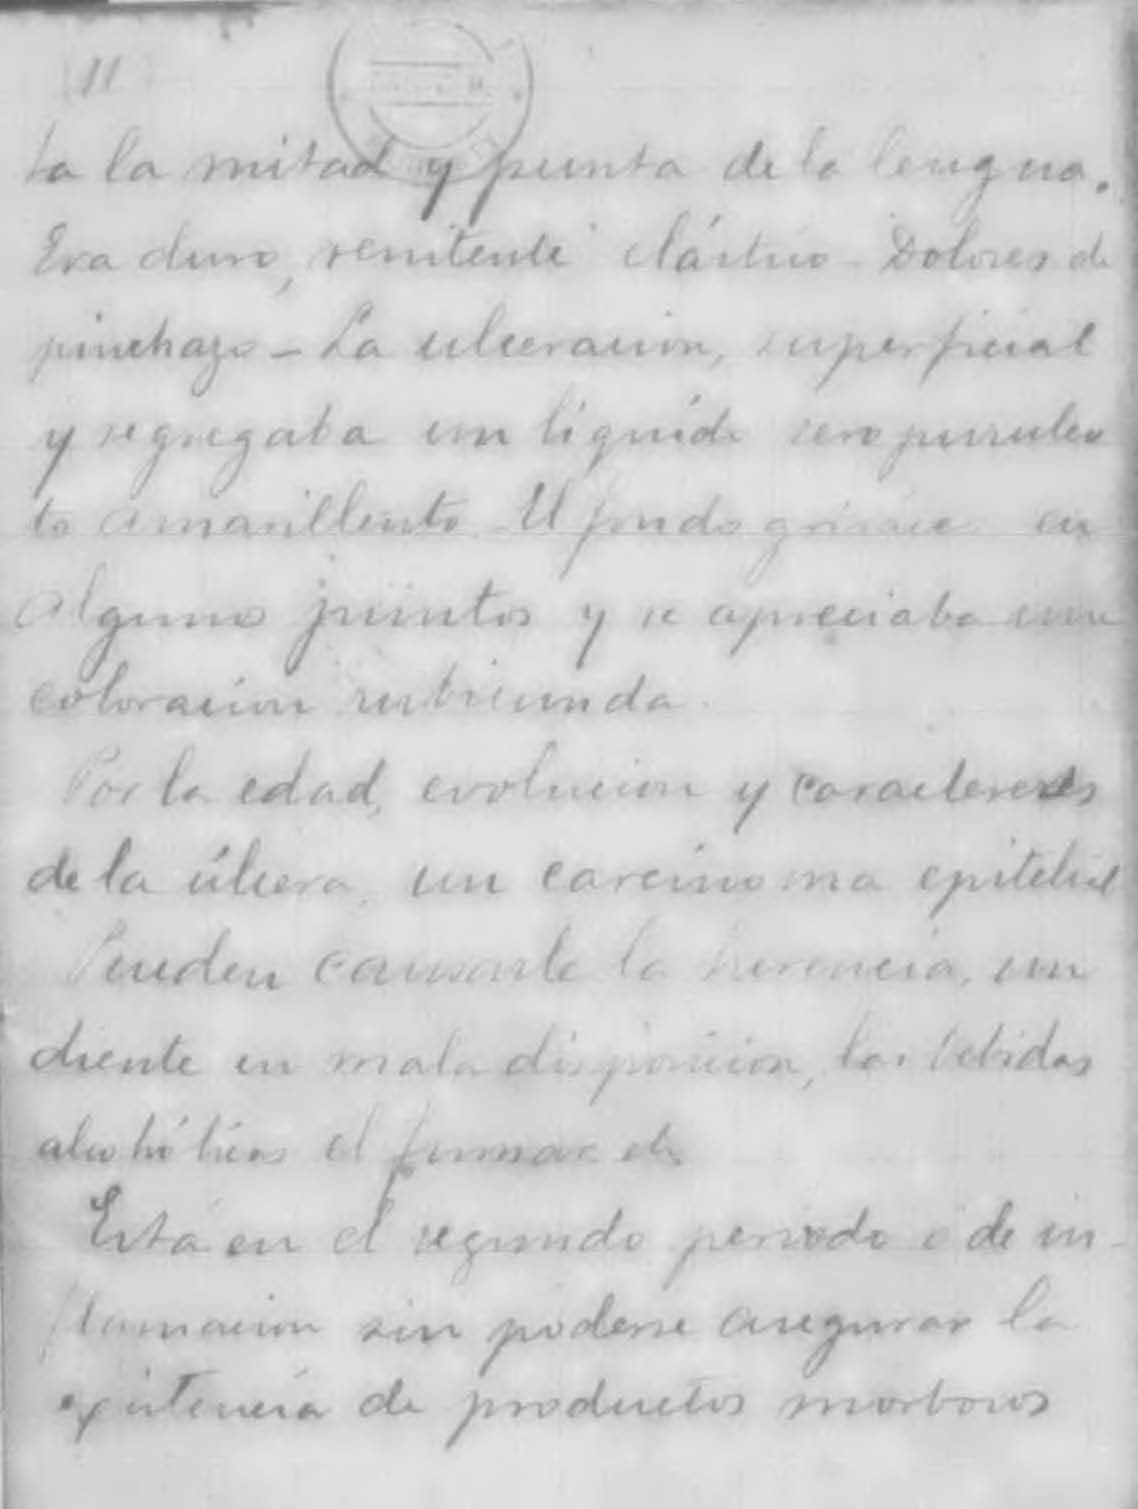 11
ta la mitad y punta de la lengua.
Era duro, renitente elástico - Dolores de
pinchazo - La ulceracion, superficial
y segregaba un líquido seropurulen
to amarillento. El fondo grisáceo en
alguno puntos y se apreciaba una
coloracion rubicunda.
Por la edad, evolucion y caracteres
de la úlcera, un carcinoma epitelial
Pueden causarle la herencia, un
diente en mala disposicion, las bebidas
alcohólicas el fumar etc
Está en el segundo periodo ó de in-
flamacion sin poderse asegurar la
existencia de productos morbosos